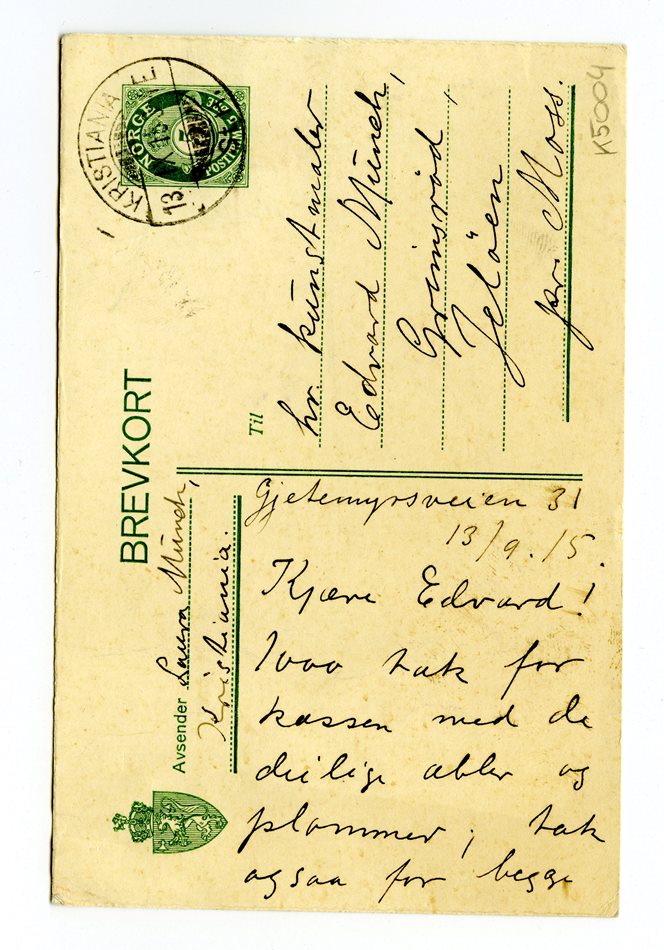 BREVKORT
KRISTIANIA
13
NORGE
5
POSTFRIM. 5 ØRE
Avsender Laura Münch,
Kristiania.
Til
hr kunstmaler
Edvard Münch,
Grimsrød,
Jeløen
pr. Moss.
K5004
Gjetemyrsveien 31
13/9. 15.
Kjære Edvard!
1000 tak for
kassen med de
deilige æbler og
plommer; tak
ogsaa for begge